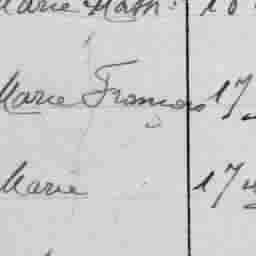 Marie Math. 18
Marie François 17
Marie 17